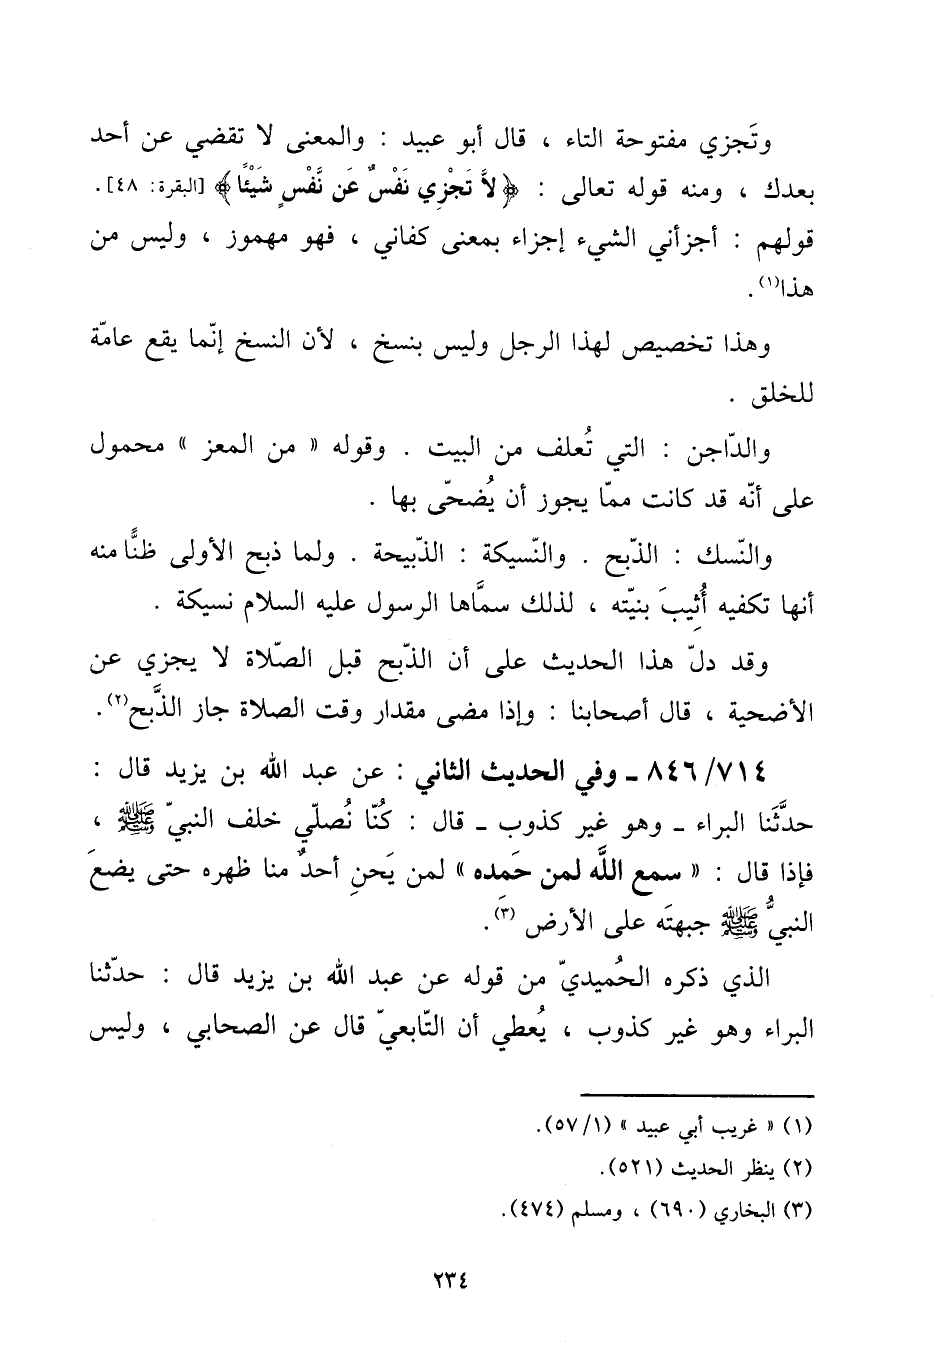 وتَجزي مفتوحة التاء ، قال أبو عبيد : والمعنى لا تقضي عن أحد
بعدك ، ومنه قوله تعالى : ﴿لاَّ تَجْزِي نَفْسٌ عَن نَّفْسٍ شَيْئًا﴾ [البقرة: ٤٨].
قولهم : أجزأني الشيء إجزاء بمعنى كفاني ، فهو مهموز ، وليس من
هذا(١).
وهذا تخصيص لهذا الرجل وليس بنسخ ، لأن النسخ إنّما يقع عامّة
للخلق .
والدّاجن : التي تُعلف من البيت . وقوله « من المعز » محمول
على أنّه قد كانت ممّا يجوز أن يُضحّى بها .
والنّسك : الذّبح . والنّسيكة : الذّبيحة . ولما ذبح الأولى ظنًّا منه
أنها تكفيه أُثِيبَ بنيّته ، لذلك سمَّاها الرسول عليه السلام نسيكة .
وقد دلّ هذا الحديث على أن الذّبح قبل الصّلاة لا يجزي عن
الأضحية ، قال أصحابنا : وإذا مضى مقدار وقت الصلاة جاز الذَّبح(٢).
٨٤٦/٧١٤ ـ وفي الحديث الثاني : عن عبد الله بن يزيد قال :
حدَّثَنا البراء ـ وهو غير كذوب ـ قال : كُنّا نُصلّي خلف النبيّ ﷺ ،
فإذا قال : « سمع اللَّه لمن حَمده » لمن يَحنِ أحدٌ منا ظهره حتى يضعَ
النبيُّ ﷺ جبهتَه على الأرض (٣).
الذي ذكره الحُميديّ من قوله عن عبد الله بن يزيد قال : حدّثنا
البراء وهو غير كذوب ، يُعطي أن التّابعيّ قال عن الصحابي ، وليس
(١) « غريب أبي عبيد » (٥٧/١).
(٢) ينظر الحديث (٥٢١).
(٣) البخاري (٦٩٠) ، ومسلم (٤٧٤).
٢٣٤